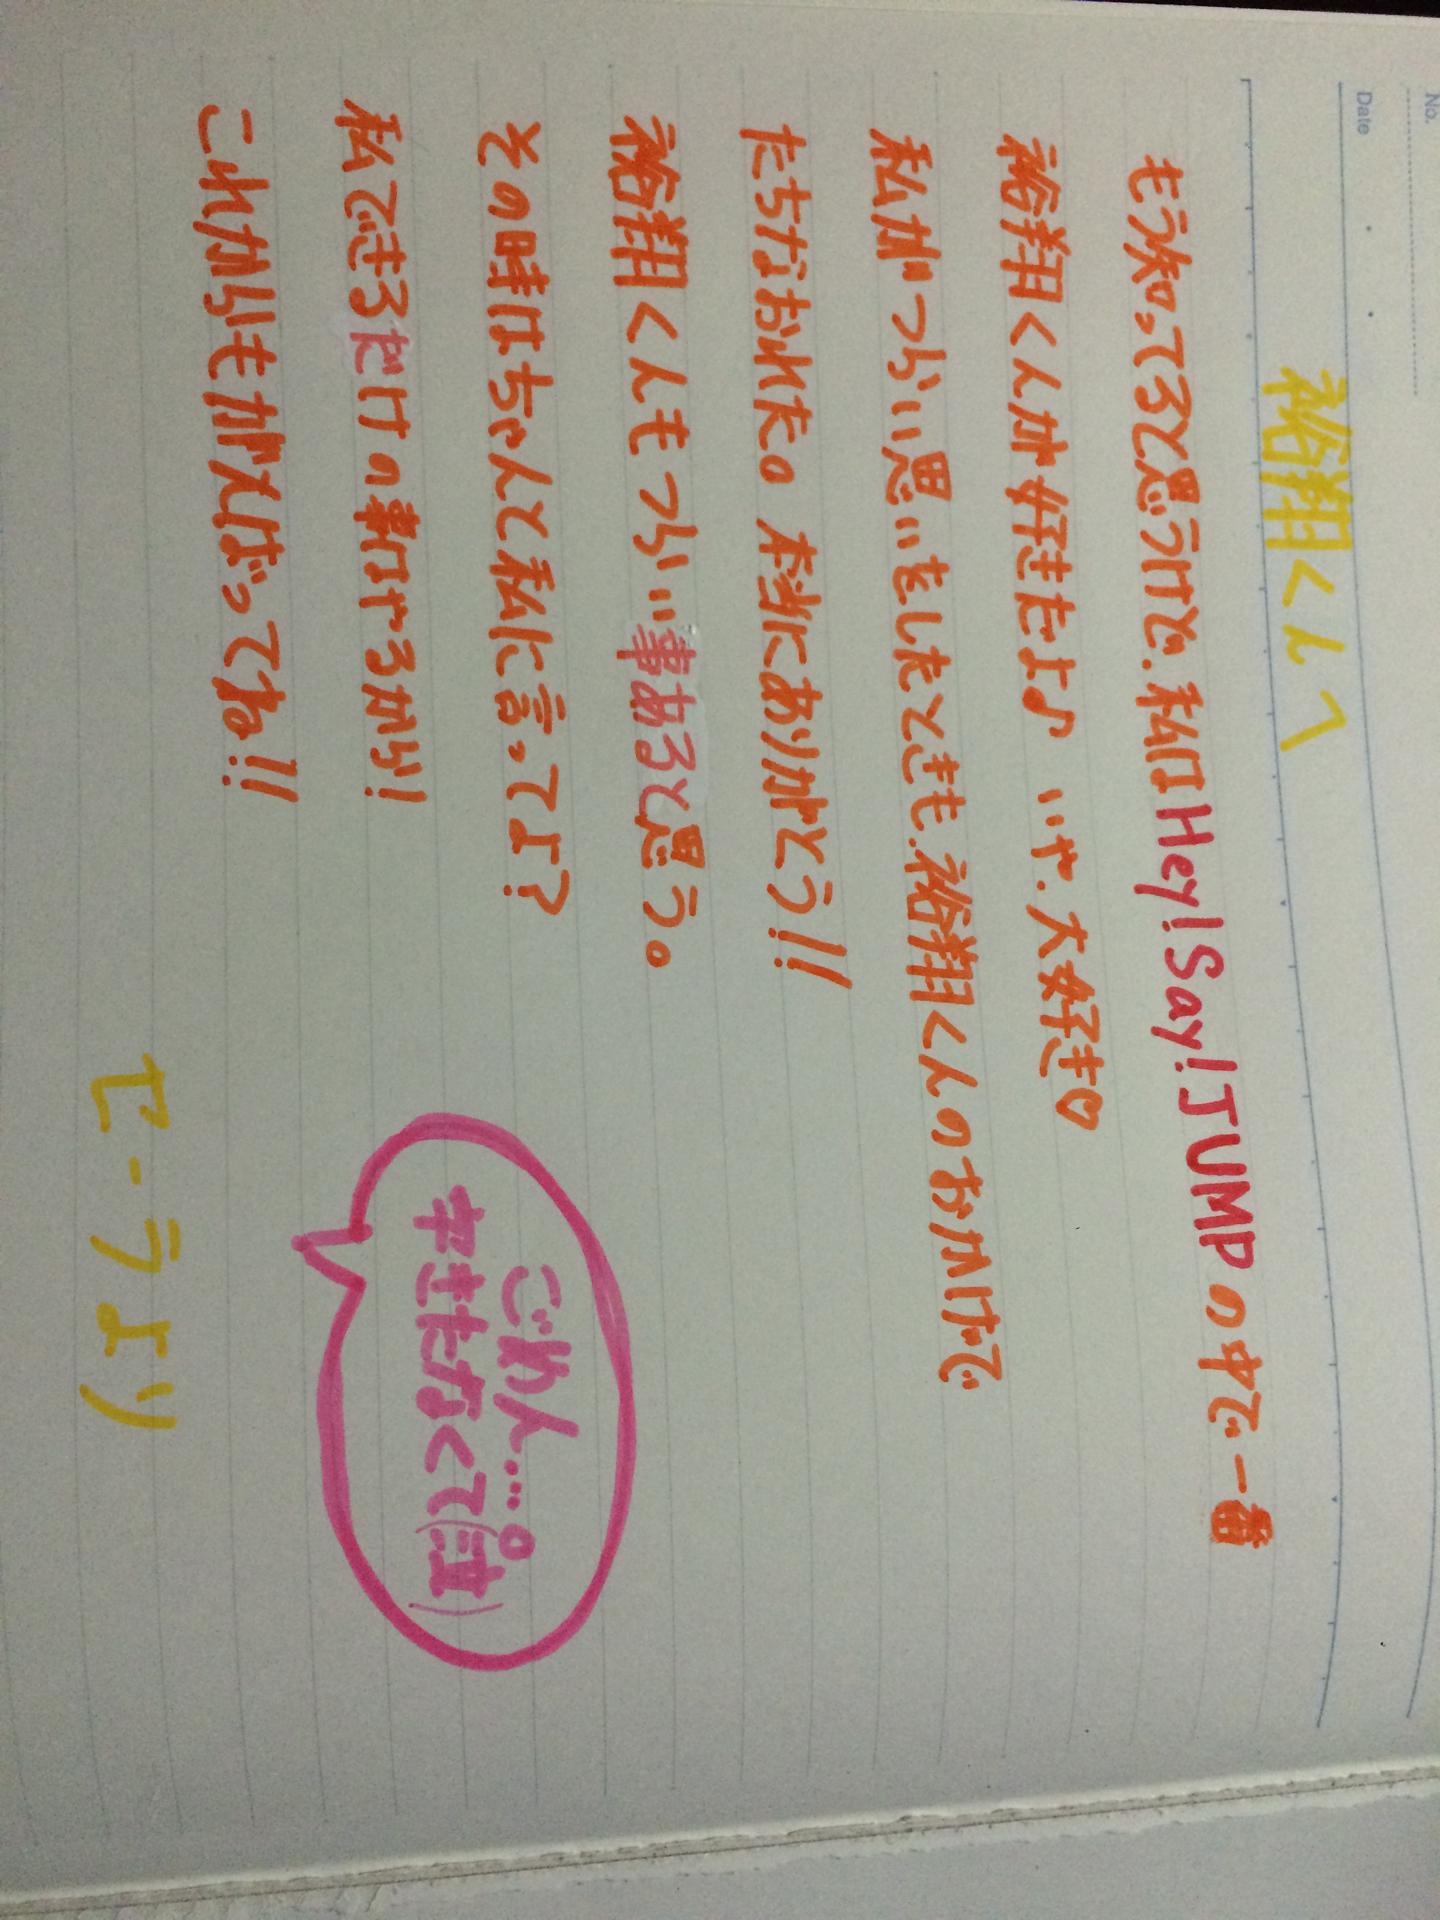 No.
Date
裕翔くんへ
もう知ってると思うけど、私はHey!Say!JUMPの中で一番
裕翔くんが好きだよ♪ いや、大好き♡
私がつらい思いをしたときも、裕翔くんのおかげで
たちなおれた。本当にありがとう!!
裕翔くんもつらい事あると思う。
その時はちゃんと私に言ってよ?
私できるだけの事はやるから!
これからもがんばってね!!
ごめん…。
字きたなくて(泣)
セーラより